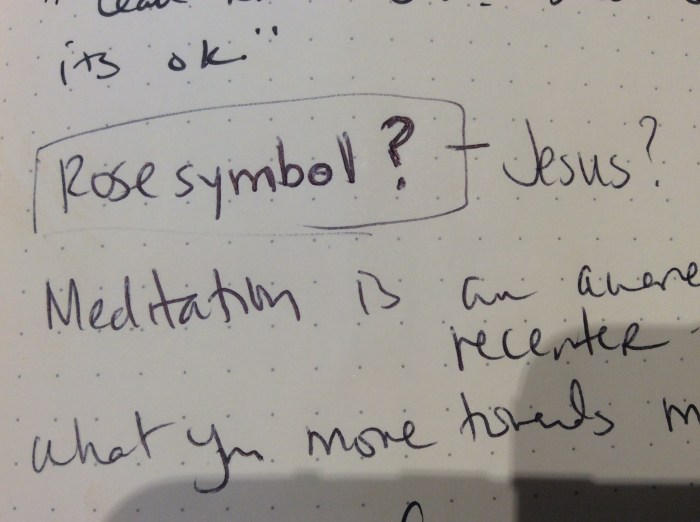 its ok"
Rose symbol? - Jesus?
Meditation is an
recenter
what you move towards